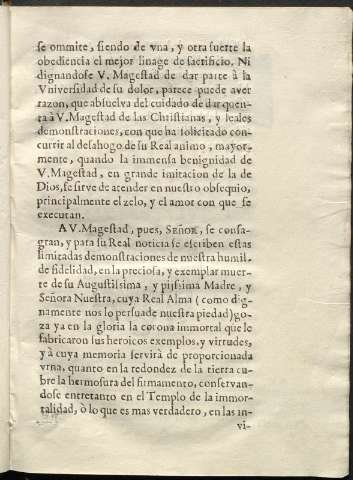 se ommite, siendo de vna, y otra suerte la
obediencia el mejor linage de sacrificio. Ni
dignandose V. Magestad de dar parte à la
Vniversidad de su dolor, parece puede aver
razon, que absuelva del cuidado de dar quen-
ta à V. Magestad de las Christianas, y leales
demonstraciones, con que ha solicitado con-
currir al desahogo de su Real animo, mayor-
mente, quando la immensa benignidad de
V. Magestad, en grande imitacion de la de
Dios, se sirve de atender en nuestro obsequio,
principalmente el zelo, y el amor con que se
executan.
A V. Magestad, pues, SEÑOR, se consa-
gran, y para su Real noticia se escriben estas
limitadas demonstraciones de nuestra humil-
de fidelidad, en la preciosa, y exemplar muer-
te de su Augustissima, y pijssima Madre, y
Señora Nuestra, cuya Real Alma (como dig-
namente nos lo persuade nuestra piedad) go-
za ya en la gloria la corona immortal que le
fabricaron sus heroicos exemplos, y virtudes,
y à cuya memoria servirà de proporcionada
vrna, quanto en la redondez de la tierra cu-
bre la hermosura del firmamento, conservan-
dose entretanto en el Templo de la immor-
talidad, ò lo que es mas verdadero, en las in-
vi-